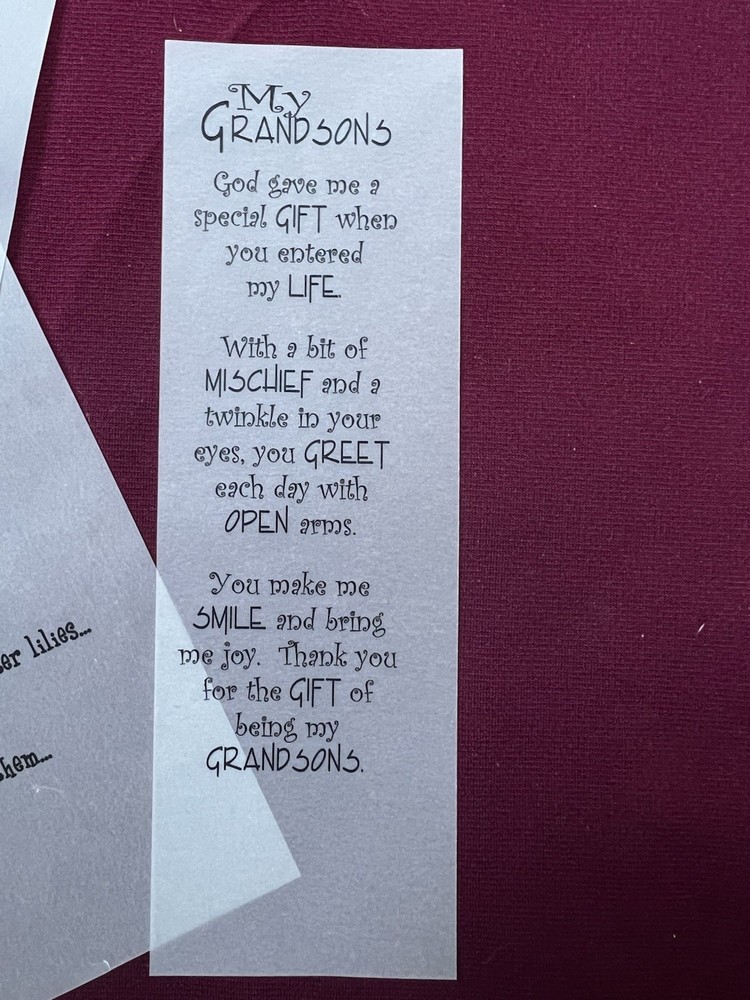 My
GRANDSONS
God gave me a
special GIFT when
you entered
my LIFE.
With a bit of
MISCHIEF and a
twinkle in your
eyes, you GREET
each day with
OPEN arms.
You make me
SMILE and bring
me joy. Thank you
for the GIFT of
being my
GRANDSONS.
lilies...